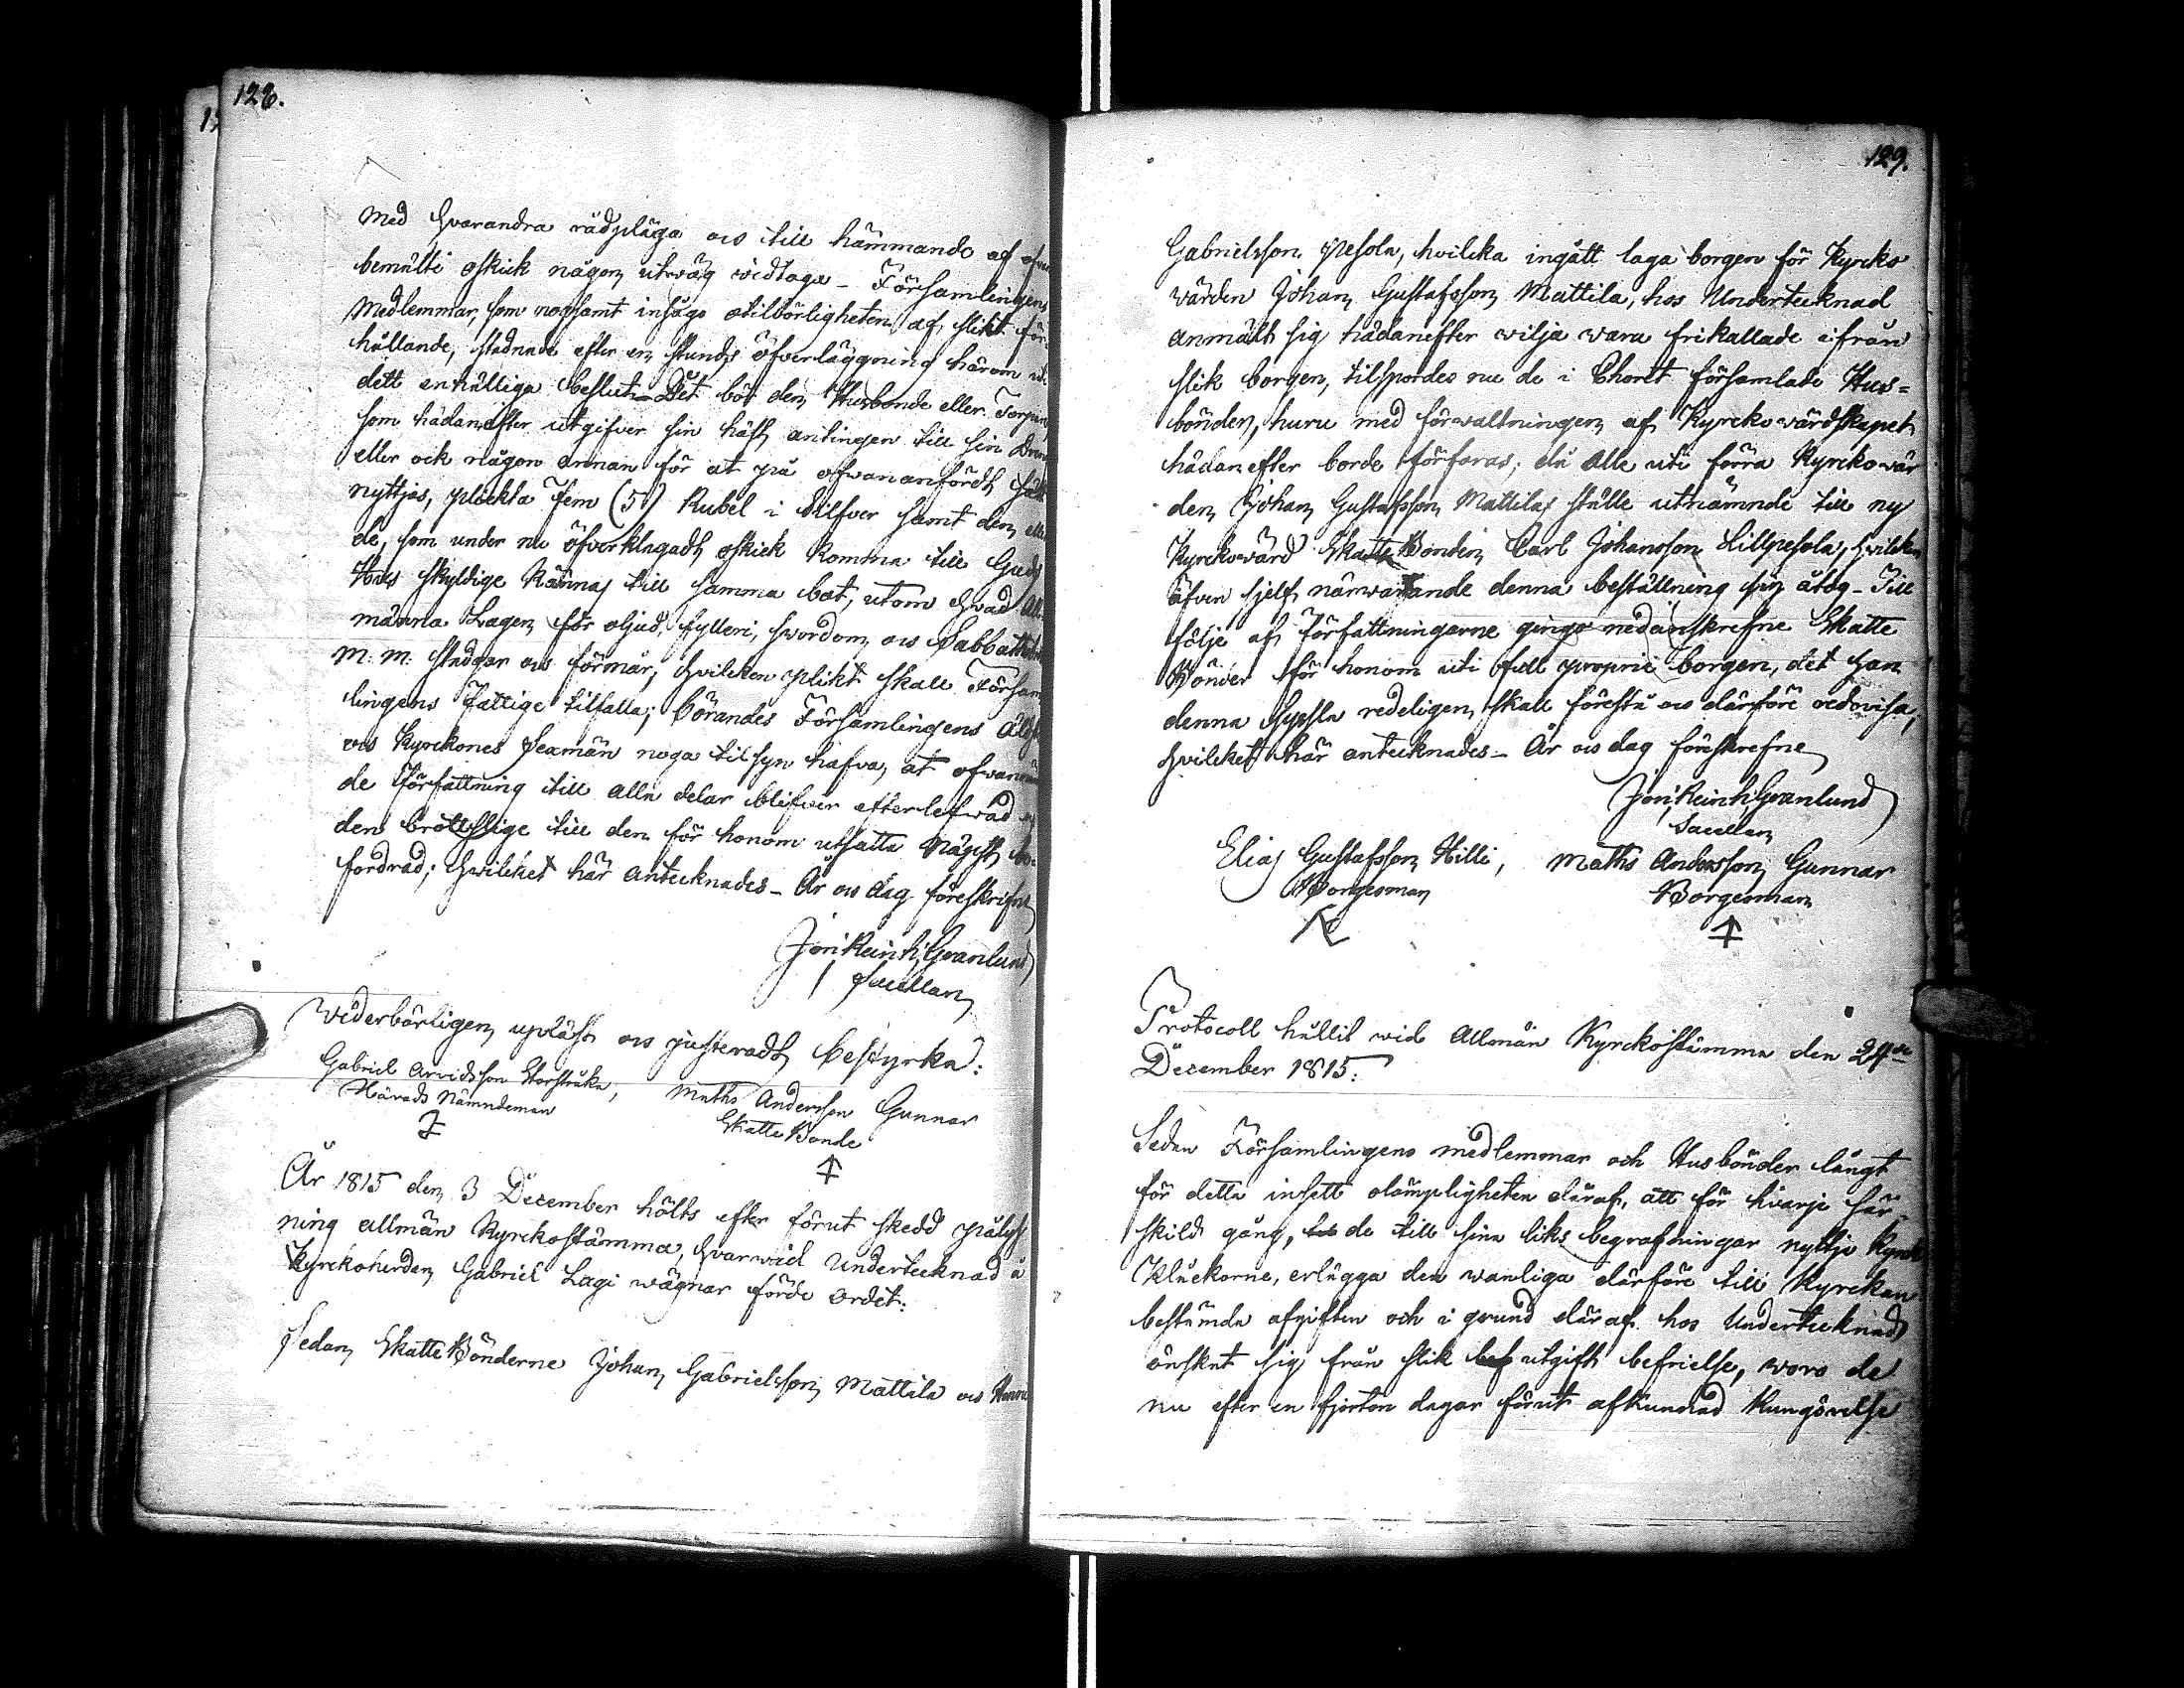 128.
Med hvarandra rådpläga och till hämmande af ofvan
bemälte oskick någon utwäg widtaga – Församlingens
Medlemmar, som nogsamt insågo otilbörligheten af slikt för=
hållande, stadnade efter en stunds öfverläggning härom uti
dett enhälliga beslut – Det bör den Husbonde eller Torpare,
som hädanefter utgifver sin häst antingen till sin Dräng
eller ock någon annan för at på ofwananfördt sätt
nyttjas, plickta Fem (5) Rubel i Silfver samt den eller
de, som under nu öfverklagadt oskick komma till Guds
Hus skyldige kännas till samma bot, utom hvad All
männa Lagen för oljud, fylleri, swordom och Sabbathsbrott
M: M: stadgar och förmår, hvilken plikt skall Försam
lingens Fattige tilfalla; börandes Församlingens Äldste
och Kyrckones Sexmän noga tilsyn hafva, at ofwannäm
de Författning till alla delar blifver efterlefwad och
den brottslige till den för honom utsatta Näpst be=
fordrad; hwilcket här antecknades – År och dag föreskrifne
Jon: Reinh: Granlund
Sacellan
Wederbörligen upläst och justeradt bestyrka:
Gabriel Arvidsson Storstråka, Maths Andersson Gunnar
Härads Nämndeman
Skatte Bonde
År 1815 den 3 December hölts efter förut skedd pålys
ning allmän Kyrckostämma, hvarwid Undertecknad å
Kyrckoherden Gabriel Lagi wägnar förde ordet:
Sedan Skatte Bönderne Johan Gabrielsson Mattila och
129.
Gabrielsson Pesola, hvilcka ingått laga borgen för Kyrcko
wärden Johan Gustafsson Mattila, hos Undertecknad
anmält sig hädanefter wilja wara frikallade ifrån
slik borgen, tilspordes nu de i Choret församlade Hus=
bönder, huru med förwaltningen af Kyrckowärdskapet
hädanefter borde förfaras, då Alle uti förra Kyrckowär
den Johan Gustafsson Mattilas ställe utnämnde till ny
Kyrckowärd Skatte Bonden Carl Johansson Lillpesola, hvilcken
äfven sjelf närwarande denna beställning sig åtog – Till
följe af Författningarne gingo nedanskrefne Skatte
Bönder för honom uti full proprie borgen, det han
denna Syssla redeligen skall förestå och därföre redovisa;
hvilcket här antecknades – År och dag föreskrefne
Jon: Reinh: Granlund
Sacellan
Elias Gustafsson Hilli, Maths Andersson Gunnar
Borgesman
Borgesman
Protocoll hållit wid Allmän Kyrckostämma den 24de
December 1815:
Sedan Församlingens medlemmar och Husbönder långt
för detta insett olämpligheten däraf, att för hvarje sär
skild gång, de till sina liks begrafningar nyttja Kyrck
Klåckorne, erlägga den wanliga därföre till Kyrckan
bestämda afgiften och i grund däraf hos Undertecknad
önskat sig från slik utgift befrielse, woro de
nu efter en fjorton dagar förut afkunnad Kungörelse